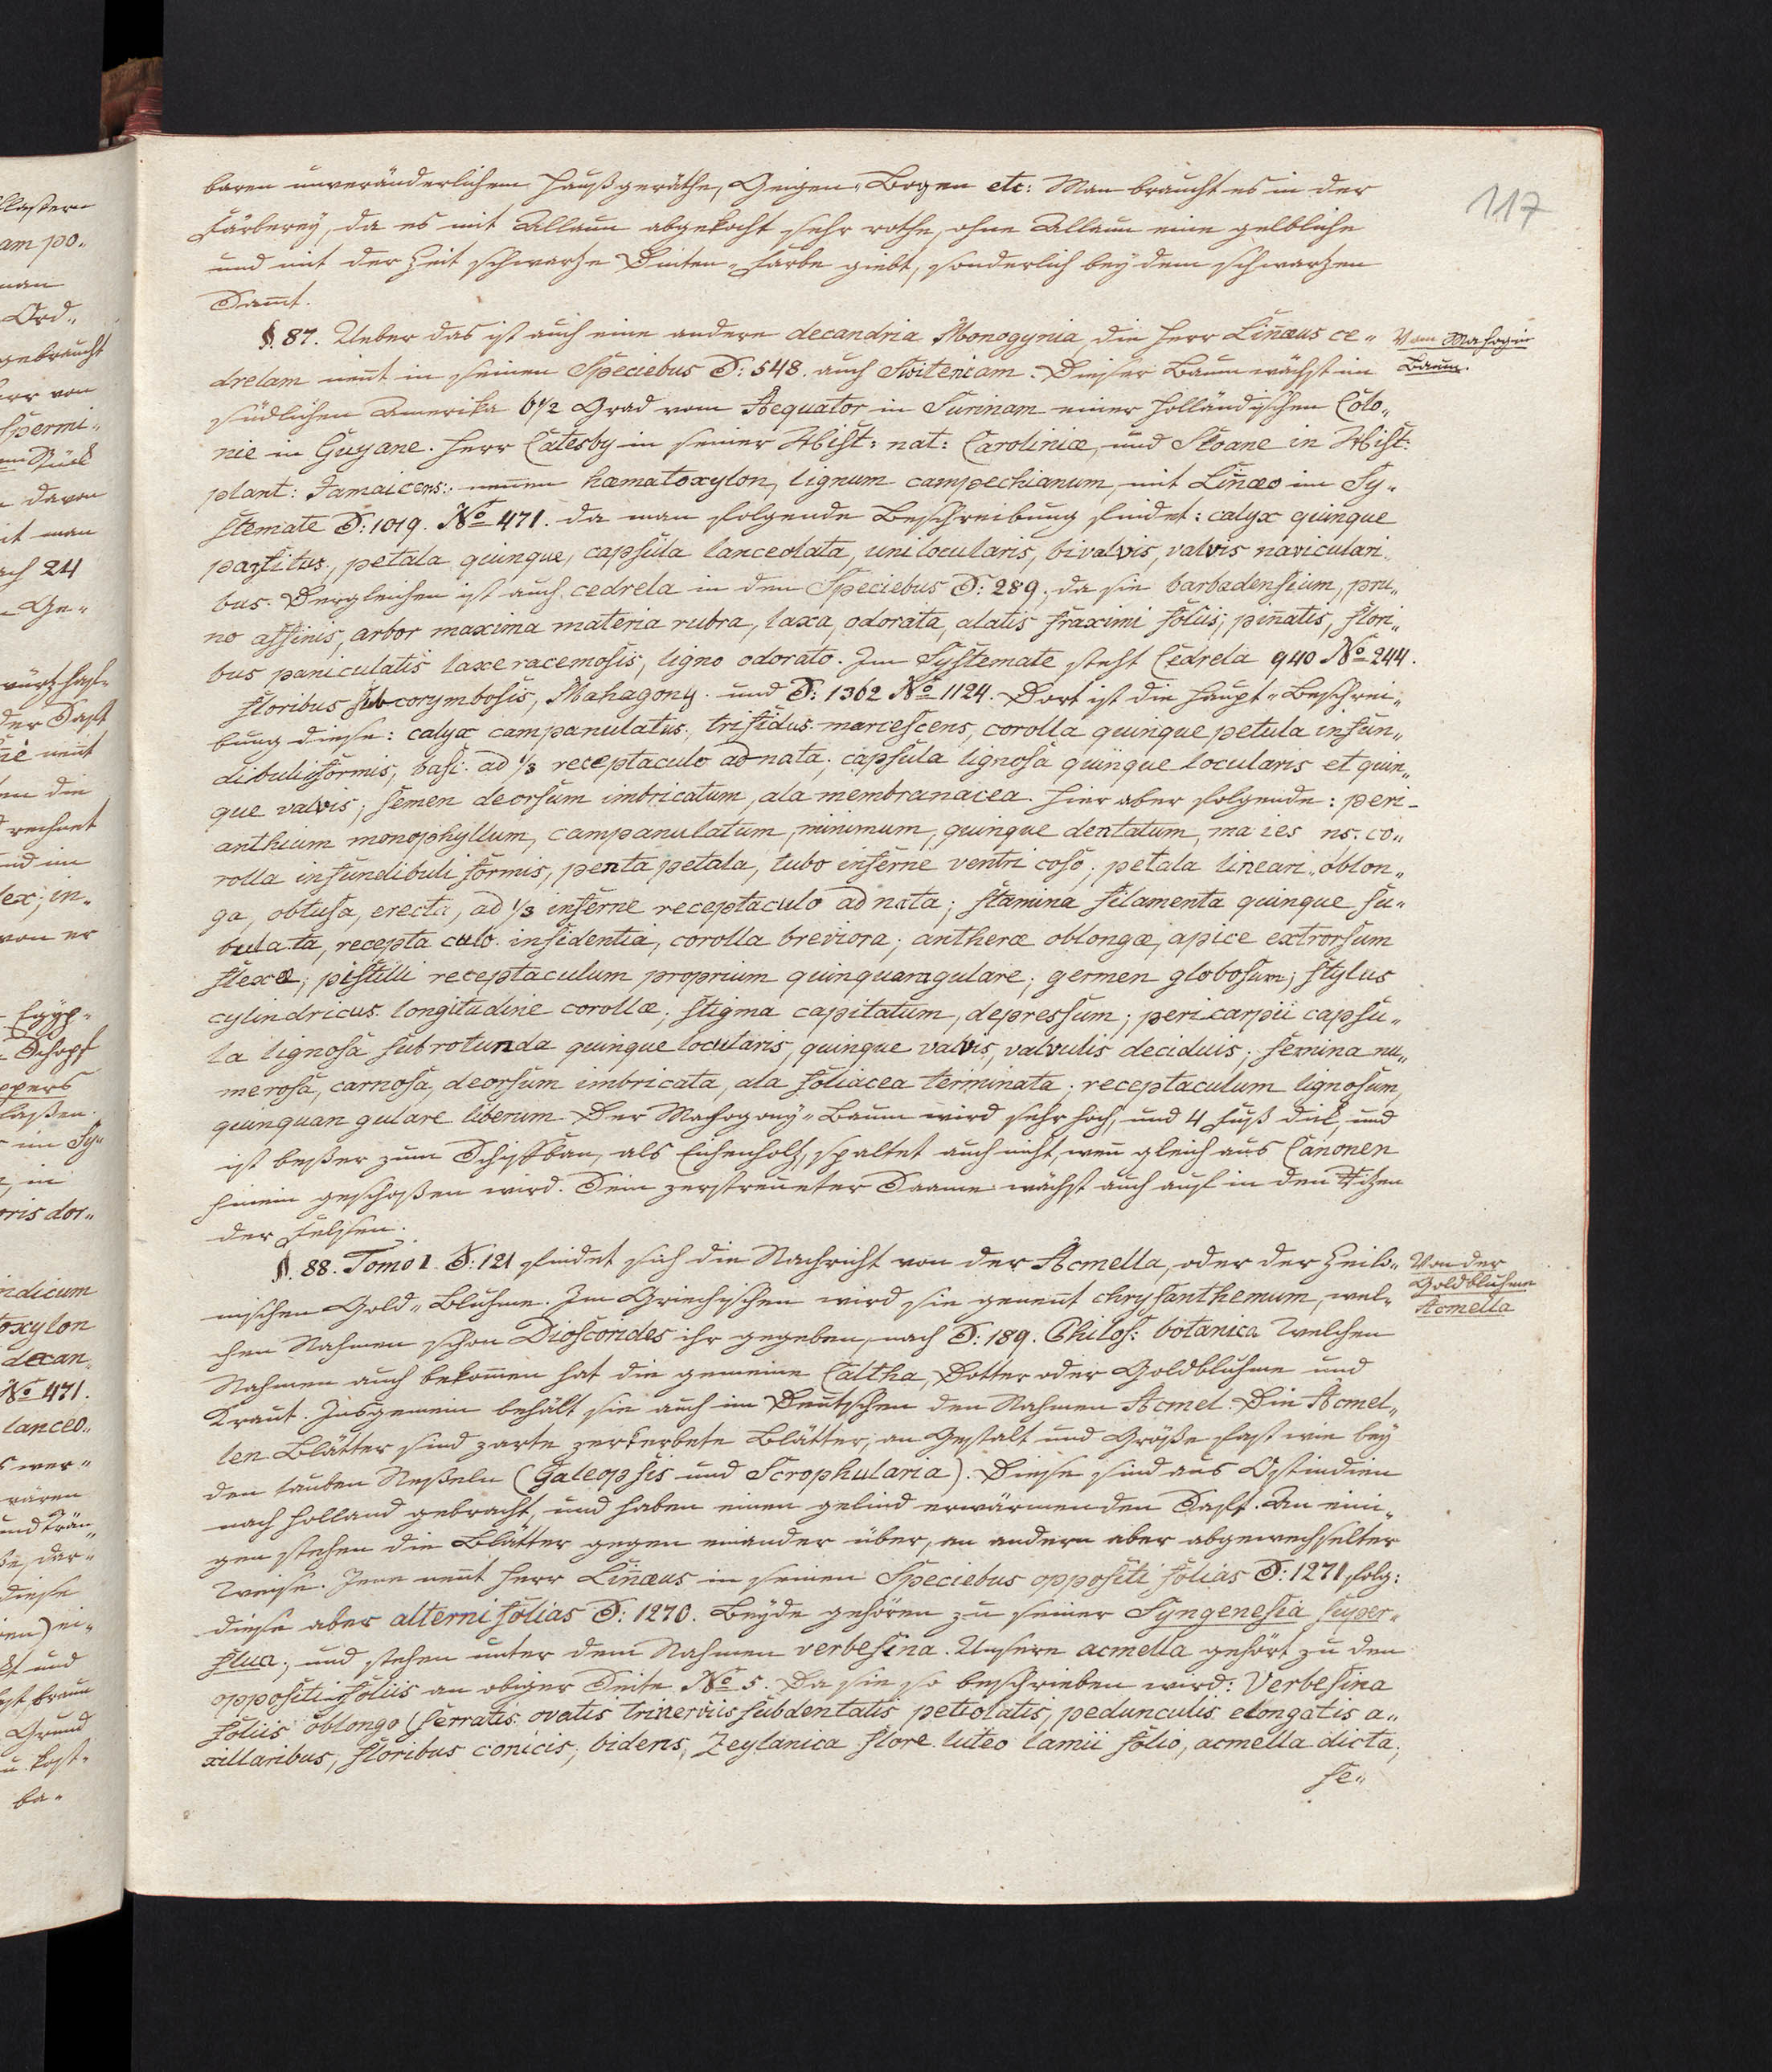 117
baren unveränderlichem Haußgeräthe, Geigen-Bogen etc: Man braucht es in der
Färberey, da es mit Allaun abgekocht sehr rothe, ohne Allaun eine gelbliche
und mit der Zeit schwartze Dinten-farbe giebt, sonderlich bey dem schwartzen
Sam̅t.
§. 87. Ueber das ist auch eine andere decandria Monogynia, die Herr Lin̅æus ce„
drelam nen̅t in seinen Speciebus S: 548. auch Switeniam. Dieser Baum wächst im
südlichen Amerika 6½ Grad vom Aequator in Surinam einer Holländischen Colo„
nie in Guyane. Herr Catesby in seiner Hist: nat: Caroliniæ, und Sloane in Hist:
plant: Jamaicens: nen̅en hæmatoxylon, lignum campechianum, mit Lin̅æo im Sy„
stemate S: 1019. No 471. da man folgende Beschreibung findet: calyx quinque
partitus, petala quinque, capsula lanceolata, unilocularis, bivalvis, valvis naviculari„
bus. Dergleichen ist auch cedrela in den Speciebus S: 289, da sie barbadensium, pru„
no affinis, arbor maxima materia rubra, laxa, odorata, alatis fraximi foliis, pin̅atis, flori„
bus paniculatis laxe racemosis, ligno odorato. Im Systemate steht Cedrela 940 No 244.
floribus subcorymbosis, Mahagony. und S: 1362 No 1124. Dort ist die Haupt-Beschrei„
bung diese: calyx campanulatus, trifidus marcescens, corolla quinque petula infun„
dibuliformis, basi ad 1/3 receptaculo adnata; capsula lignosa quinque locularis et quin„
que valvis; semen deorsum imbricatum, ala membranacea. Hier aber folgende: peri-
anthium monophyllum, campanulatum, minimum, quinque dentatum, ma ies ns. co„
rolla infundibuli formis, penta petala, tubo inferne ventri coso; petala lineari„oblon„
ga, obtusa, erecta, ad 1/3 inferne receptaculo ad nata; stamina filamenta quinque su„
bula ta, recepta culo insidentia, corolla breviora; antheræ oblongæ, apice extrorsum
flexæ; pistilli receptaculum proprium quinquangulare; germen globosum; stylus
cylindricus longitudine corollæ; stigma capitatum, depressum; peri carpii capsu„
la lignosa subrotunda quinque locularis, quinque valvis, valvulis deciduis; semina nu„
merosa, carnosa, deorsum imbricata, ala foliacea terminata; receptaculum lignosum,
quinquan gulare liberum. Der Mahogony-Baum wird sehr hoch, und 4 Fuß dick, und
ist beßer zum Schiffbau, als Eichenholtz, spaltet auch nicht, wen̅ gleich aus Canonen
hinein geschoßen wird. Sein zerstreueter Saame wächst auch auf in den Ritzen
der Felsen.
§. 88. Tomo I. S: 121 findet sich die Nachricht von der Acmella, oder der Zeilo„
nischen Gold-Bluhme. Im Griechischen wird sie genen̅t chrysanthemum, wel„
chen Nahmen schon Dioscorides ihr gegeben, nach S: 189. Philos: botanica. Welchen
Nahmen auch bekom̅en hat die gemeine Caltha, Dotter oder Goldbluhme und
Kraut. Insgemein behält sie auch im Deutschen den Nahmen Acmel. Die Acmel„
len Blätter sind zarte zerkerbete Blätter, an Gestalt und Größe fast wie bey
den tauben Neßeln (Galeopsis und Scrophularia). Diese sind aus Ostindien
nach Holland gebracht, und haben einen gelind erwärmenden Saft. An eini„
gen stehen die Blätter gegen einander über, an andern aber abgewechselter
Weise. Jene nen̅t Herr Lin̅æus in seinen Speciebus oppositi folias S: 1271 folg:
diese aber alterni folias S: 1270. Beyde gehören zu seiner Syngenesia super„
flua; und stehen unter dem Nahmen verbesina. Unsere acmella gehört zu den
oppositifoliis an obiger Seite No 5. Da sie so beschrieben wird: Verbesina
foliis oblongo (serratis ovatis trinerviis subdentatis petiolatis, pedunculis elongatis a„
xillaribus, floribus conicis, bidens, Zeylanica flore luteo lamii folio, acmella dicta,
se„
Vom Mahogin
Baum.
Von der
Goldbluhme
Acmella